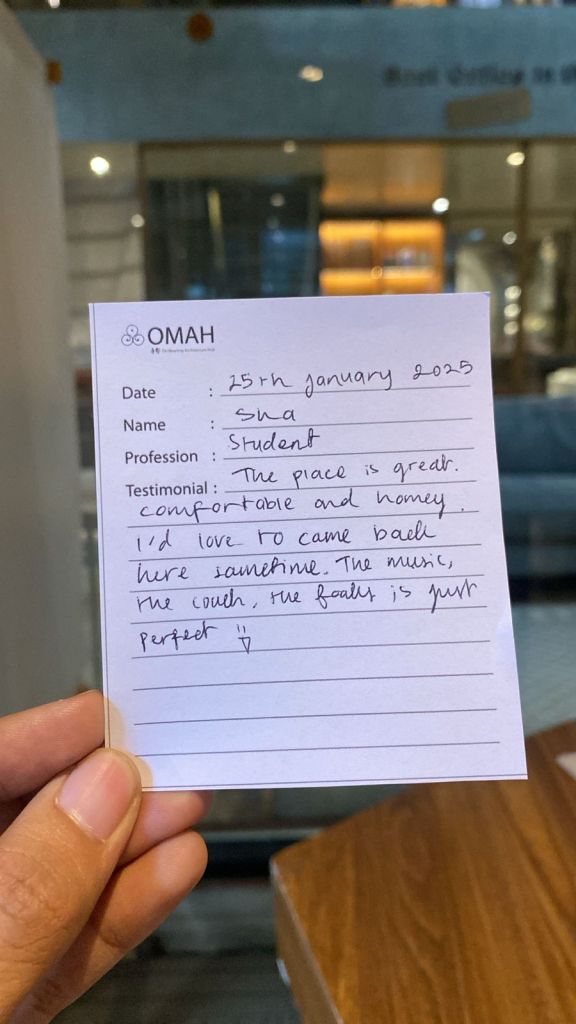 OMAH
Date : 25th january 2025
Name : Sha
Profession : Student
Testimonial : The place is great.
comfortable and homey.
i'd love to came back
here sametime. The music,
the couch, the foods is just
perfect